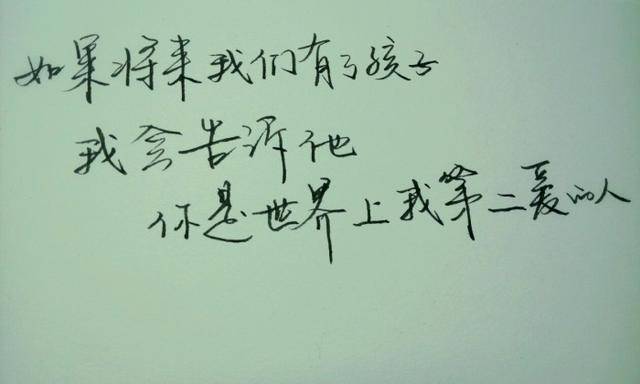 如果将来我们有了孩子
我会告诉他
你是世界上我第二爱的人